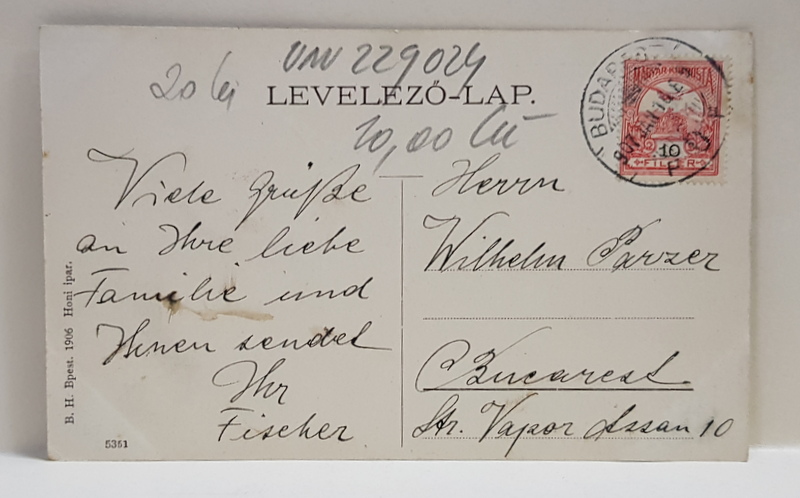 20 lei
UNV 229024
LEVELEZŐ-LAP.
10,00 lei
Viele Grüße
an Ihre liebe
Familie und
Ihnen sendet
Ihr
Fischer
Herrn
Wilhelm Parzer
Bucarest
Str. Vapor Assan 10
B. H. Bpest. 1906 Honi ipar.
5351
BUDAPEST
MAGYAR KIR. POSTA
10
FILLÉR